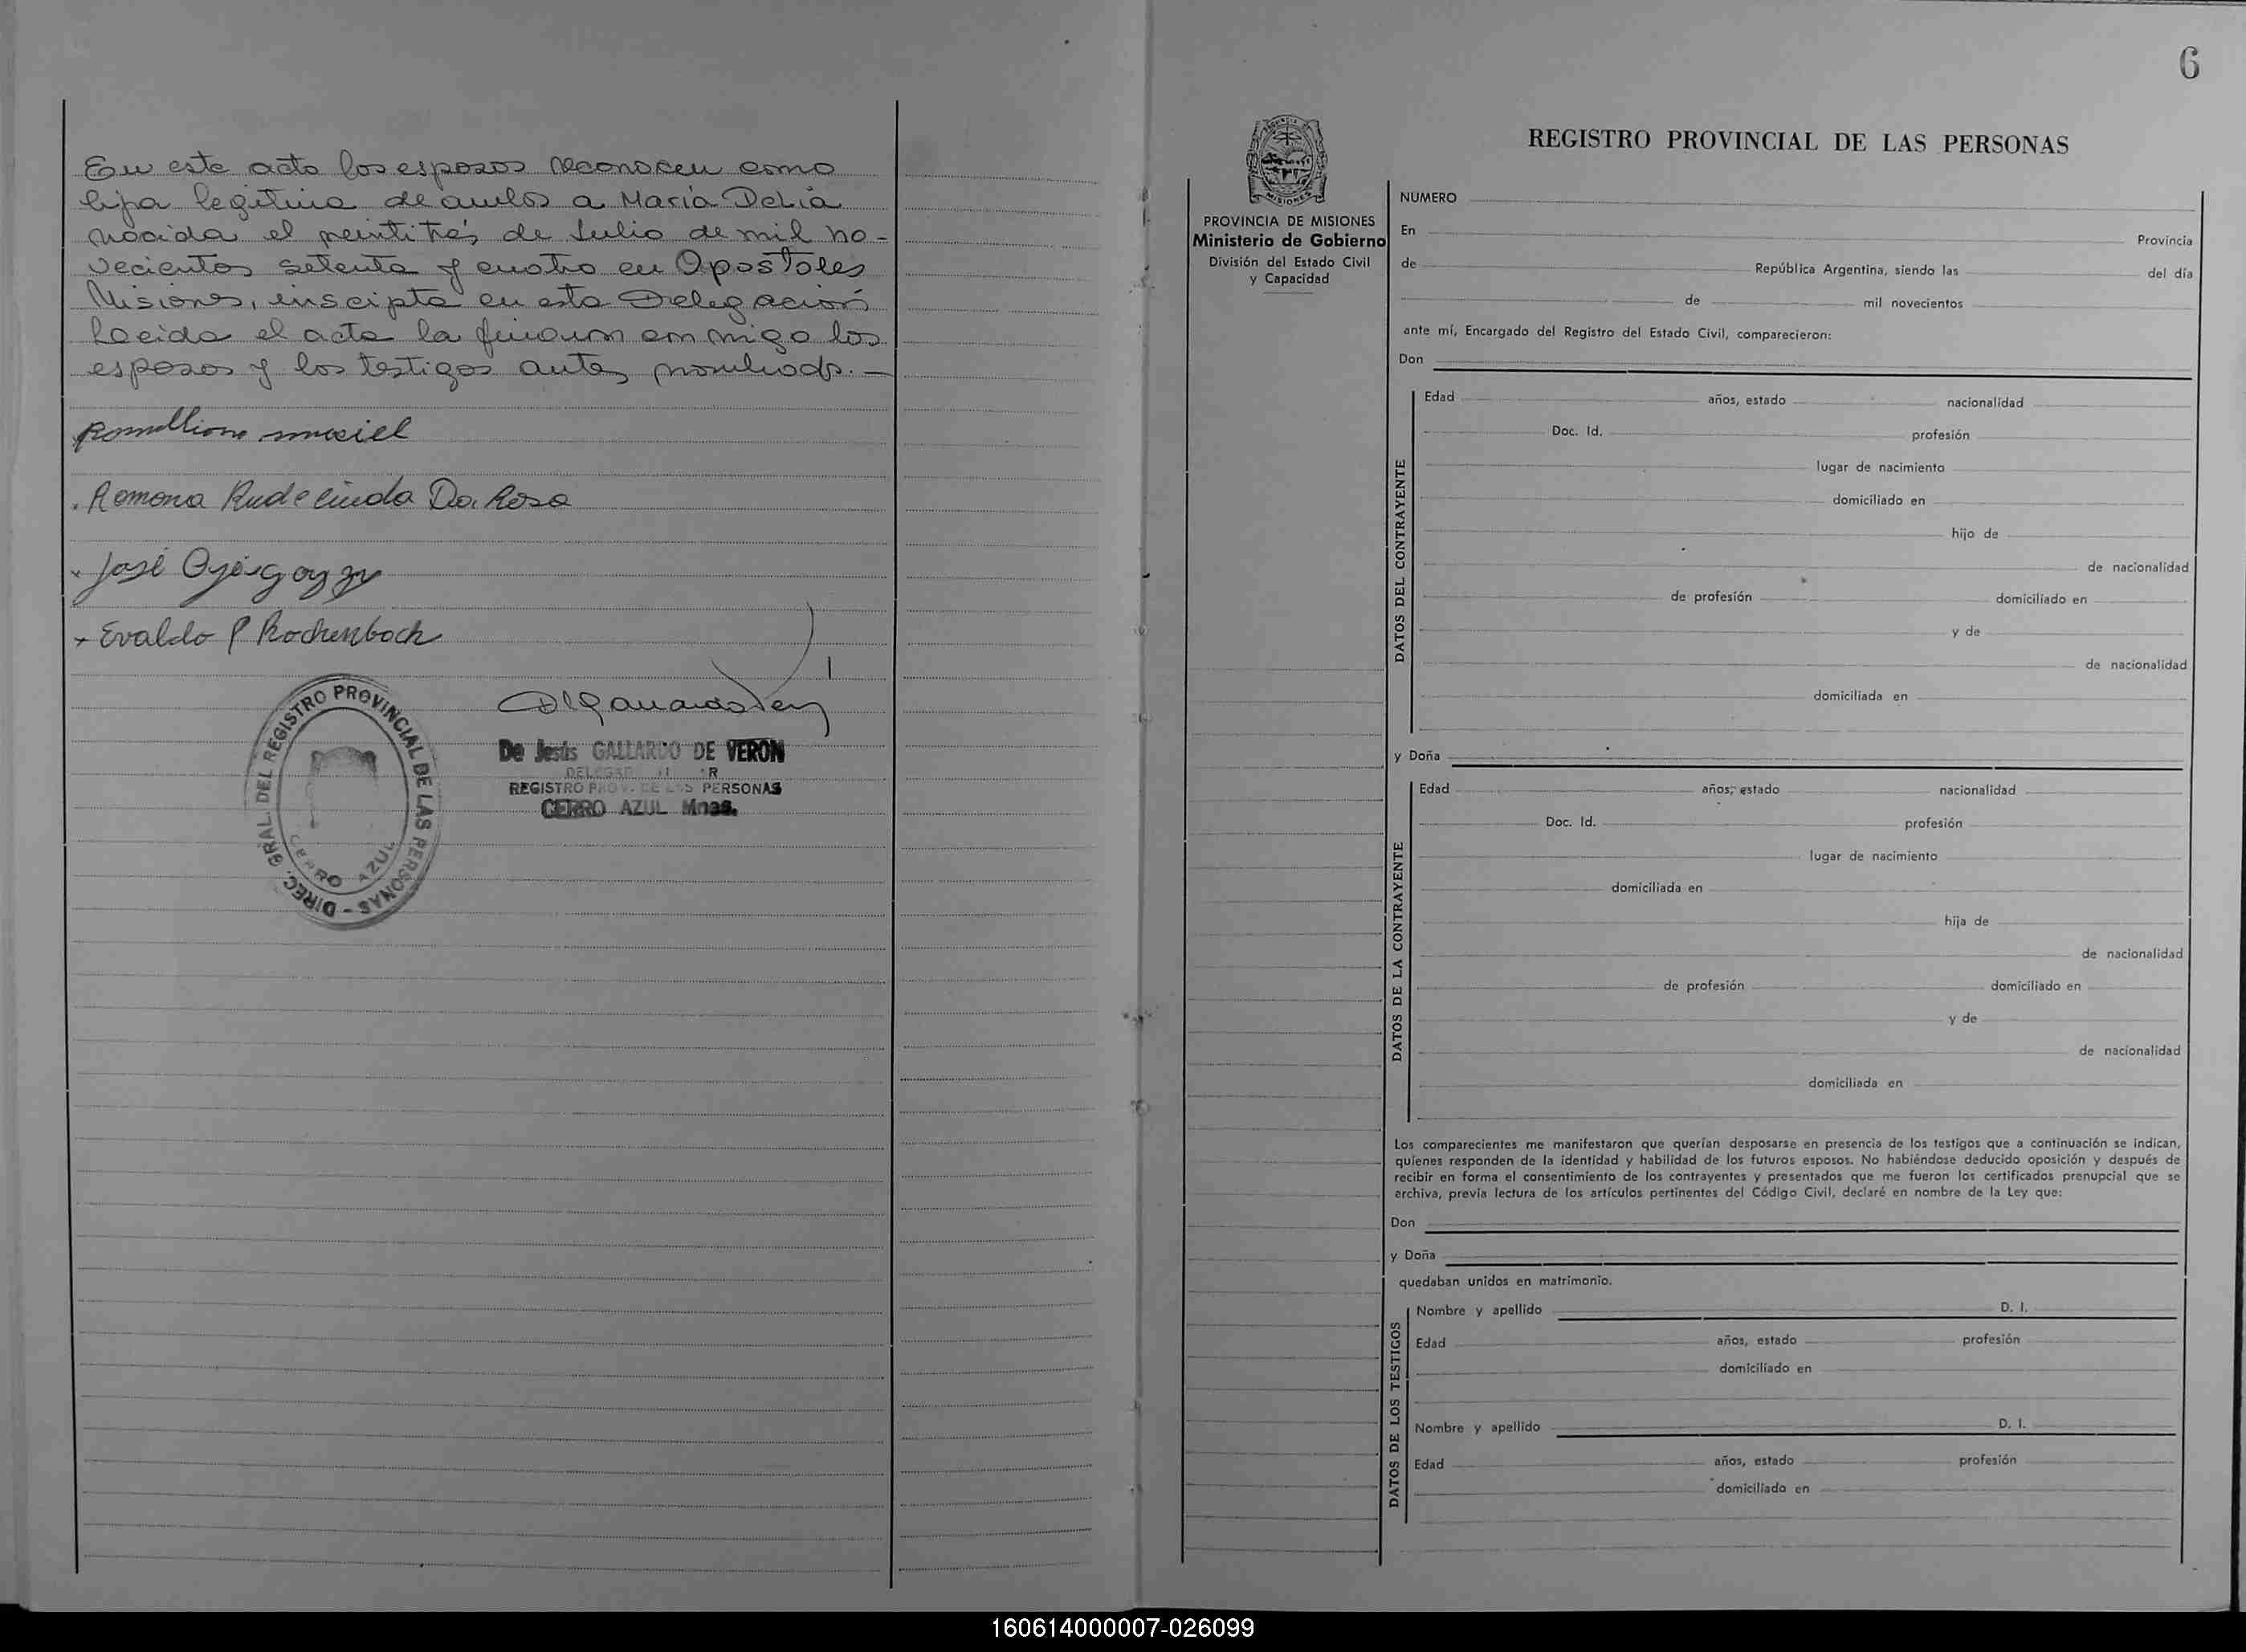 En este acto los esposos reconocen como
hija legitima de ambos a María Delia
nacida el veintitrés de Julio de mil no-
vecientos setenta y cuatro en Apostoles
Misiones, inscipta en esta Delegación
Leeida el acta la firman conmigo los
esposos y los testigos antes nombrados. —
maciel
Ramona Rudelinda Da Rosa
José
Evaldo P Rochenbach
DIREC. GRAL. DEL REGISTRO PROVINCIAL DE LAS PERSONAS -
CERRO AZUL
De Jesús GALLARDO DE VERON
REGISTRO PROV. DE LAS PERSONAS
CERRO AZUL Mnes.
6
PROVINCIA DE MISIONES
Ministerio de Gobierno
División del Estado Civil
y Capacidad
REGISTRO PROVINCIAL DE LAS PERSONAS
NUMERO
En Provincia
de República Argentina, siendo las del día
de mil novecientos
ante mí, Encargado del Registro del Estado Civil, comparecieron:
Don
DATOS DEL CONTRAYENTE
Edad años, estado nacionalidad
Doc. Id. profesión
lugar de nacimiento
domiciliado en
hijo de
de nacionalidad
de profesión domiciliado en
y de
de nacionalidad
domiciliada en
y Doña
DATOS DE LA CONTRAYENTE
Edad años, estado nacionalidad
Doc. Id. profesión
lugar de nacimiento
domiciliada en
hija de
de nacionalidad
de profesión domiciliado en
y de
de nacionalidad
domiciliada en
Los comparecientes me manifestaron que querían desposarse en presencia de los testigos que a continuación se indican,
quienes responden de la identidad y habilidad de los futuros esposos. No habiéndose deducido oposición y después de
recibir en forma el consentimiento de los contrayentes y presentados que me fueron los certificados prenupcial que se
archiva, previa lectura de los artículos pertinentes del Código Civil, declaré en nombre de la Ley que:
Don
y Doña
quedaban unidos en matrimonio.
DATOS DE LOS TESTIGOS
Nombre y apellido D. I.
Edad años, estado profesión
domiciliado en
Nombre y apellido D. I.
Edad años, estado profesión
domiciliado en
160614000007-026099